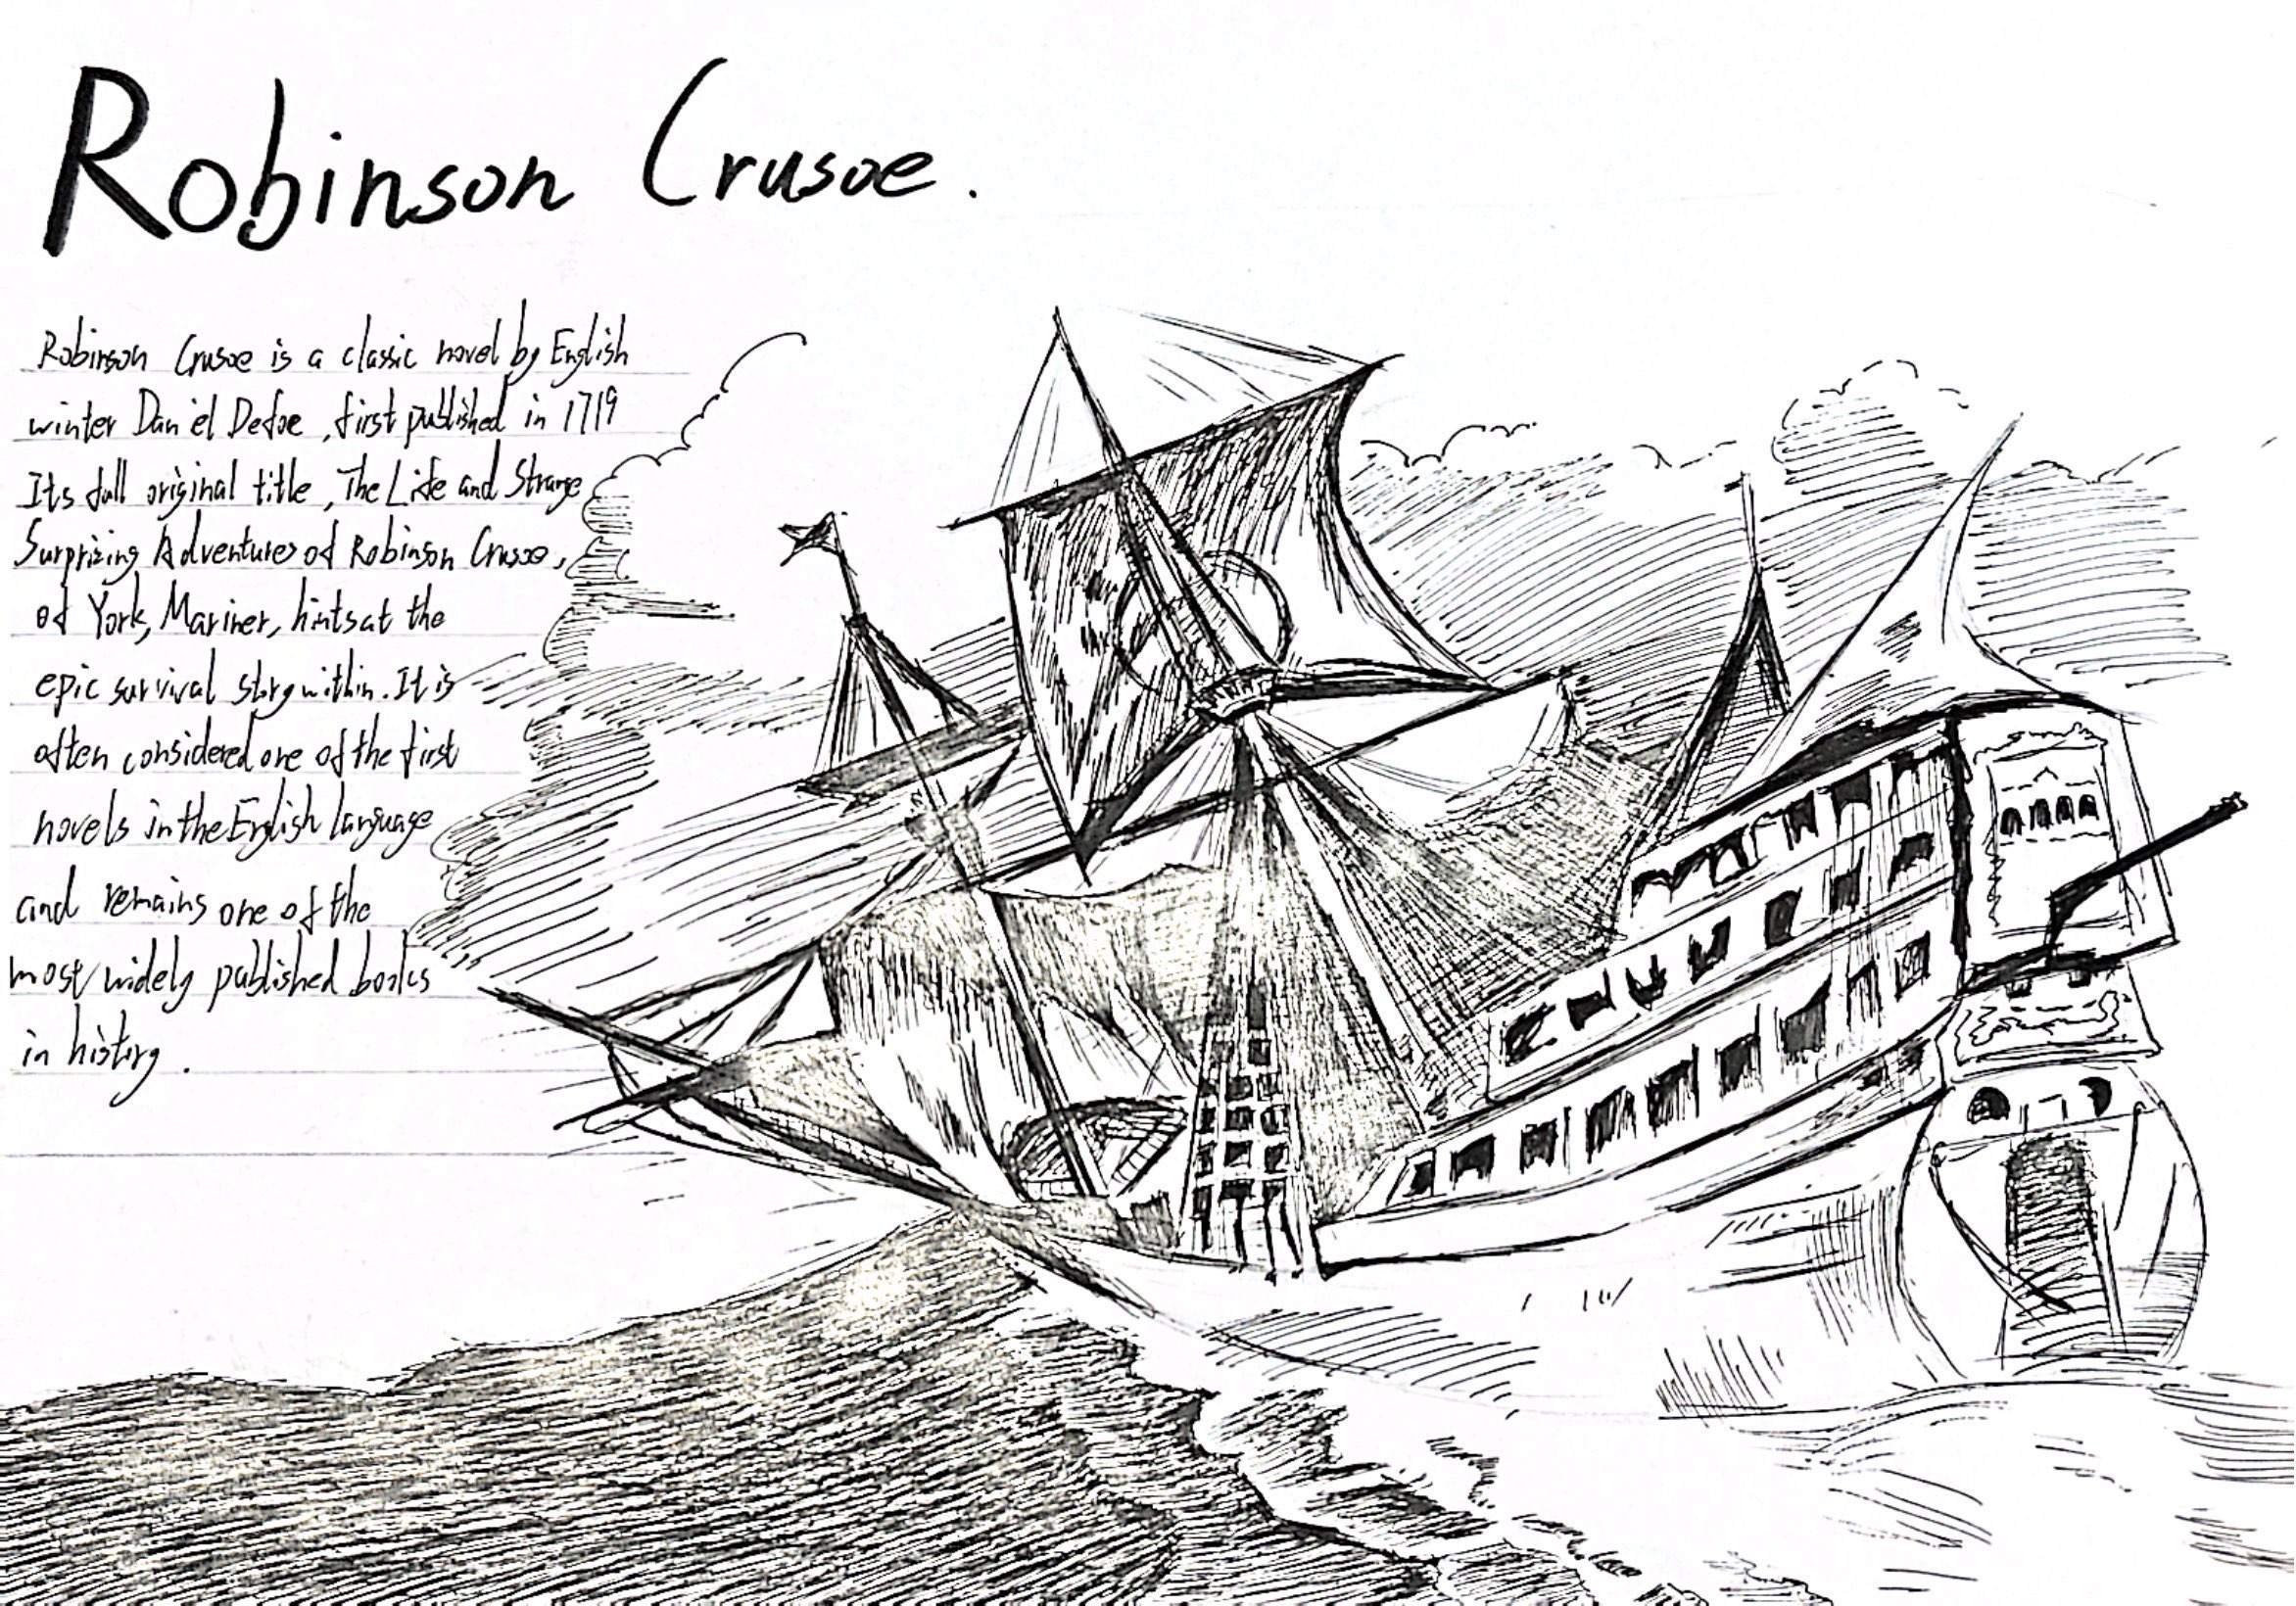 Robinson Crusoe.
Robinson Crusoe is a classic novel by English
winter Daniel Defoe, first published in 1719
Its full original title, The Life and Strange
Surprizing Adventures of Robinson Crusoe,
of York, Mariner, hints at the
epic survival story within. It is
often considered one of the first
novels in the English language
and remains one of the
most widely published books
in history.